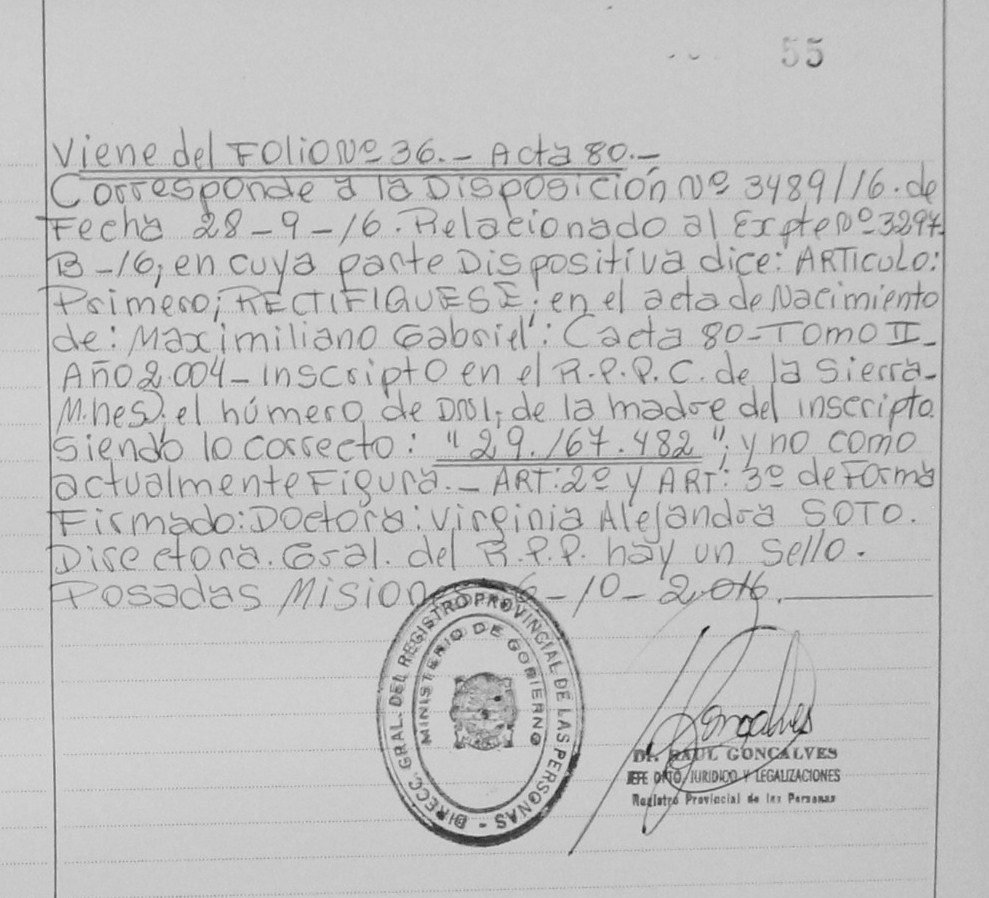 55
Viene del Folio Nº 36.- Acta 80.-
Corresponde a la Disposición Nº 3489/16. de
Fecha 28-9-16. Relacionado al Expte Nº 3297
B-16, en cuya parte Dispositiva dice: ARTICULO:
Primero; RECTIFIQUESE; en el acta de Nacimiento
de: Maximiliano Gabriel: Cacta 80-Tomo II-
Año 2.004- Inscripto en el R.P.P.C. de la Sierra-
M.nes). el número de DNI; de la madre del inscripto.
Siendo lo correcto: "29.167.482"; y no como
actualmente Figura.- ART: 2º y ART: 3º de Forma
Firmado: Doctora: Virginia Alejandra SOTO.
Directora. Gral. del R.P.P. hay un sello.
Posadas Mision 6-10-2.016.
DIRECC. GRAL. DEL REGISTRO PROVINCIAL DE LAS PERSONAS -
MINISTERIO DE GOBIERNO
Gonçalves
Dr. RAUL GONCALVES
JEFE DPTO. JURIDICO Y LEGALIZACIONES
Registro Provincial de las Personas